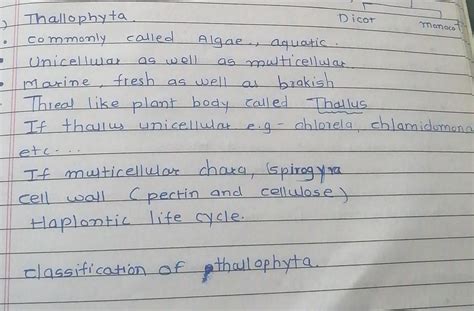 Dicot monocot
) Thallophyta.
• commonly called Algae., aquatic.
• Unicellular as well as multicellular.
• Marine, fresh as well as brakish
Thread like plant body called Thallus
If thallus unicellular e.g - chlorela, chlamidomona
etc....
If multicellular chara, spirogyra
cell wall (pectin and cellulose)
Haplontic life cycle.
classification of thallophyta.